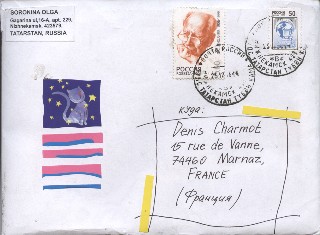 SORONINA OLGA
Gagarina ul,16-A, apt. 229,
Nizhnekamsk, 423579,
TATARSTAN, RUSSIA
РОССИЯ
50
куда:
Denis Charmot
15 rue de Vanne,
74460 Marnaz,
FRANCE
(Франция)